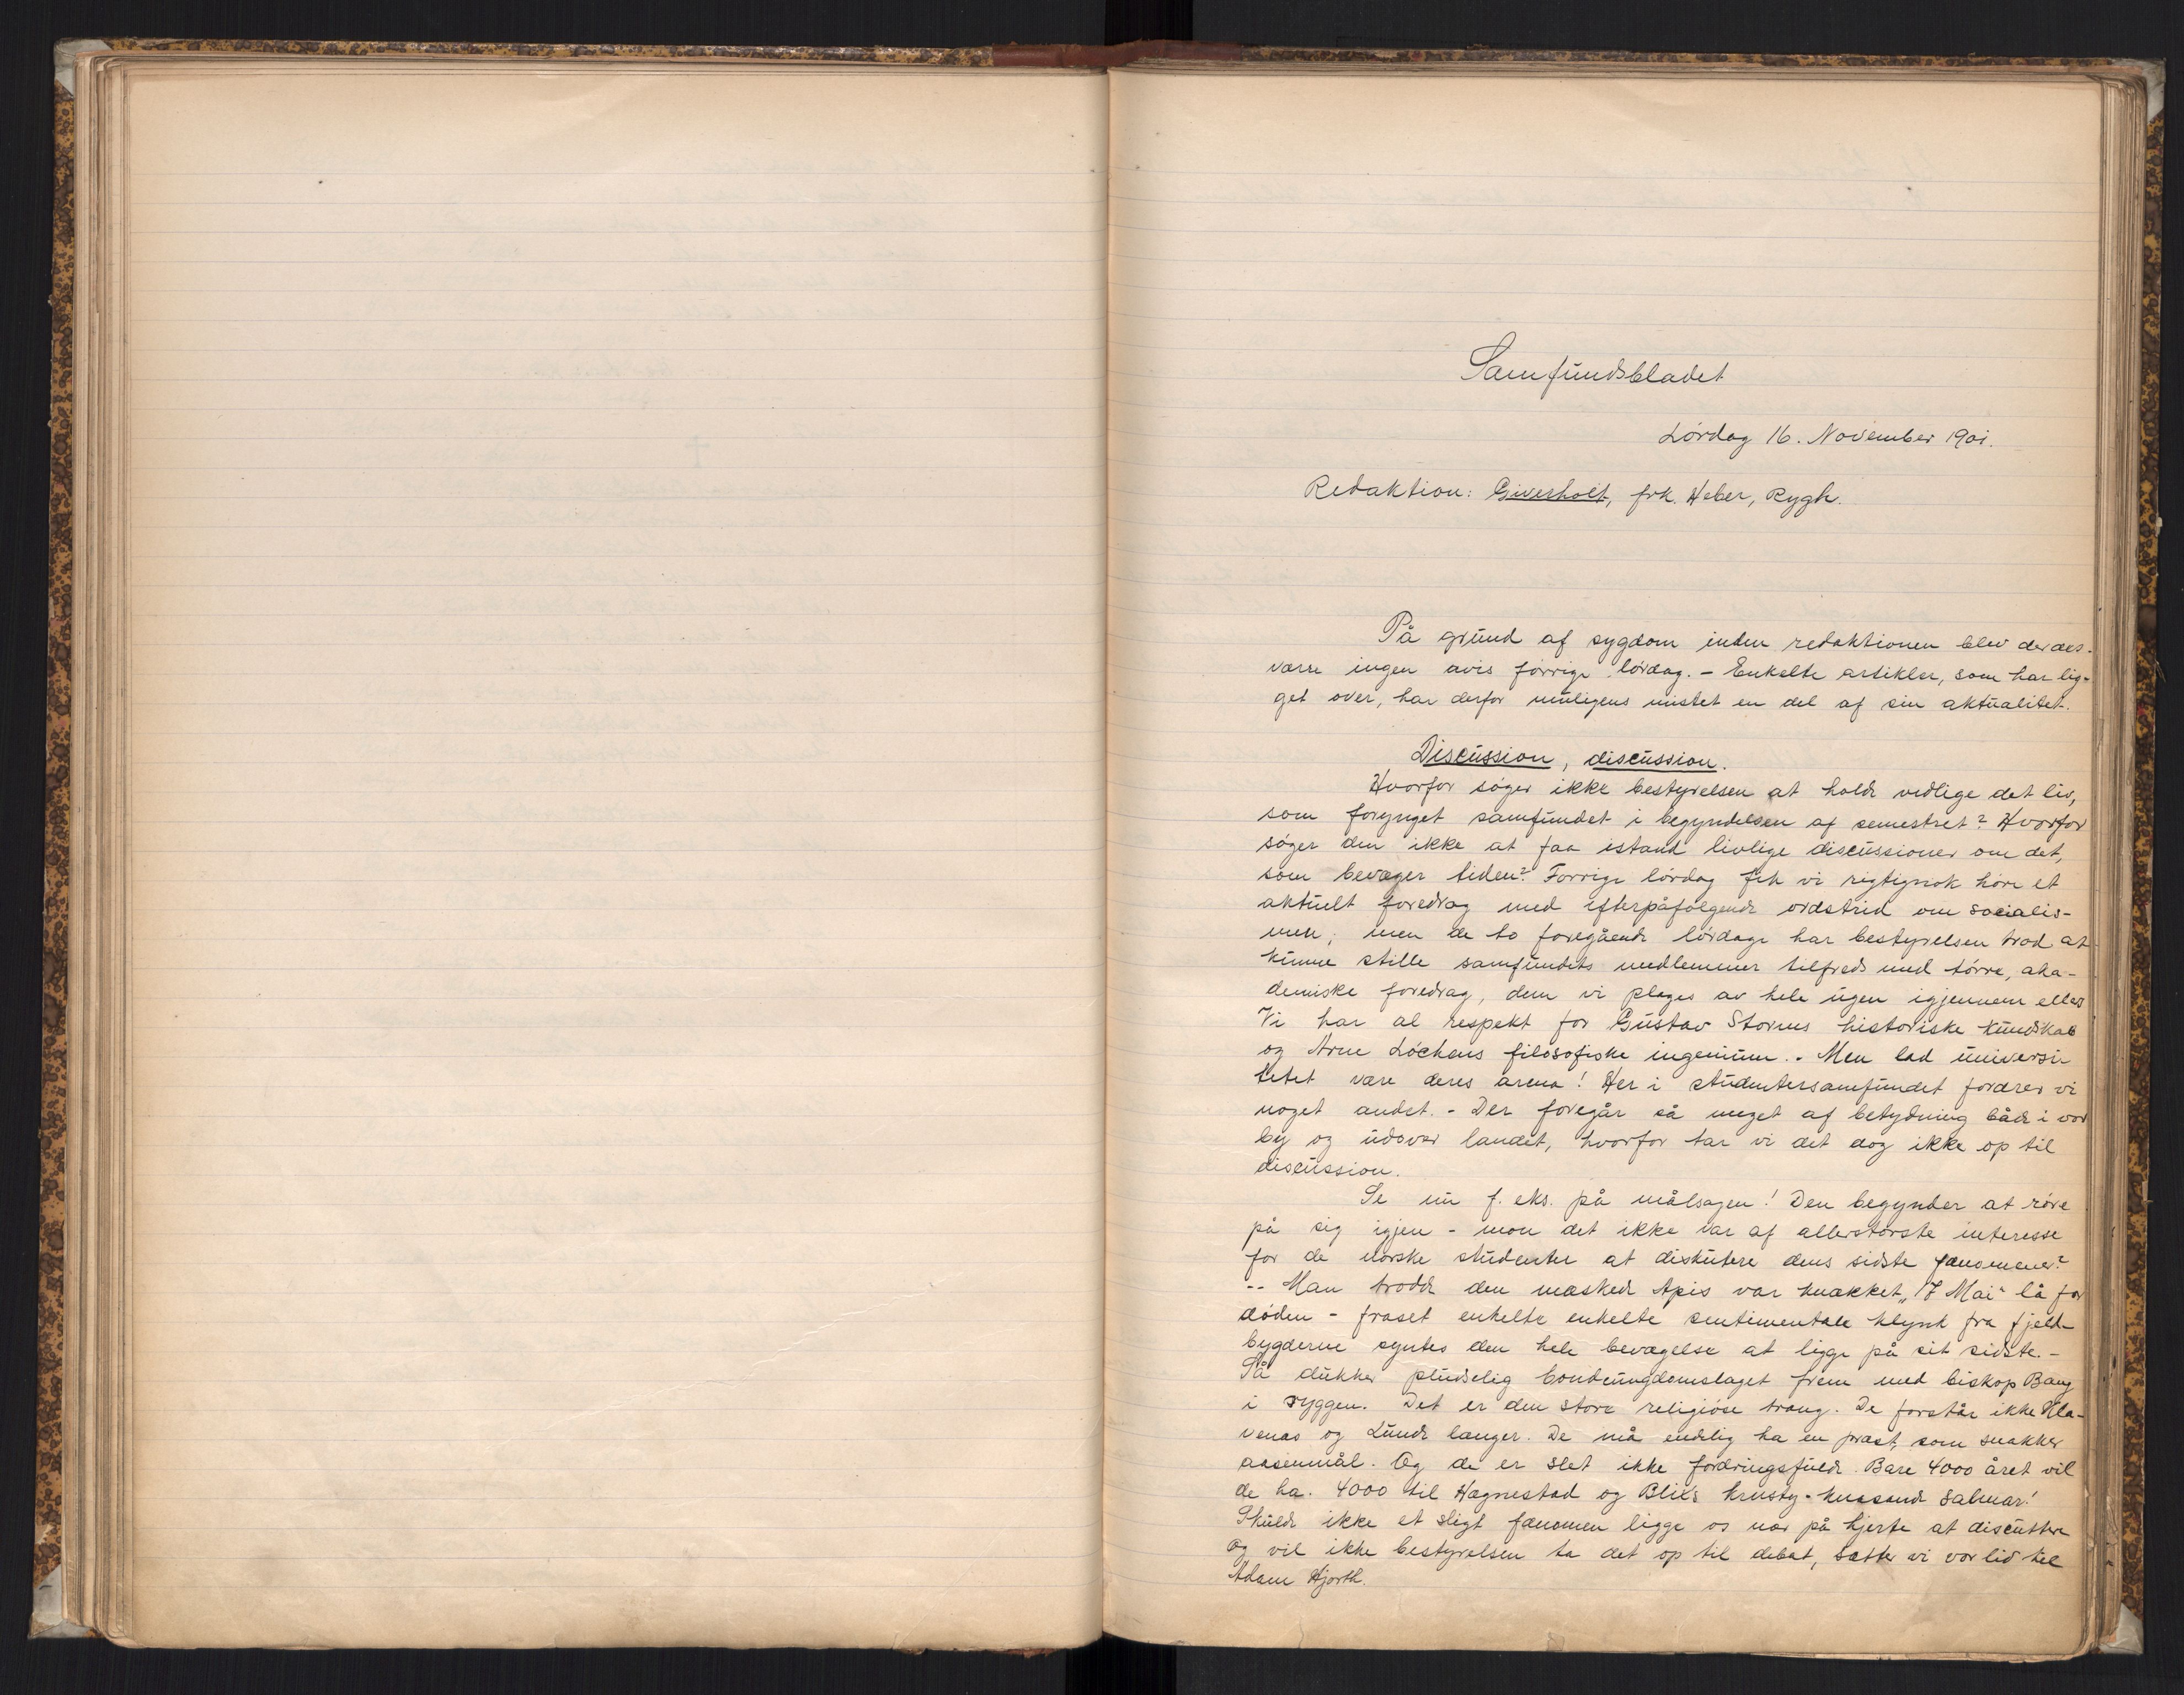 Samfundsbladet
Lördag 16. November 1901.
Redaktion: Giverholt, frk. Weber, Rygh.
På grund af sygdom inden redaktionen blev der des-
værre ingen avis forrige lördag. - Enkelte artikler, som har lig-
get over, har derfor muligens mistet en del af sin aktualitet.
Discussion, discussion.
Hvorfor söger ikke bestyrelsen at holde vedlige det liv,
som forynget samfundet i begyndelsen af semestret? Hvorfor
söger den ikke at faa istand livlige discussioner om det,
som bevæger tiden? Forrige lördag fik vi rigtignok höre et
aktuelt foredrag med efterpåfölgende ordstrid om socialis-
men; men de to foregående lördage har bestyrelsen trod at
kunne stille samfundets medlemmer tilfreds med törre, aka-
demiske foredrag, dem vi plages av hele ugen igjennem ellers
Vi har al respekt for Gustav Storms historiske kundskab
og Arne Löchens filosofiske ingenium. - Men lad universi
tetet være deres arena! Her i studentersamfundet fordrer vi
noget andet. - Der foregår så meget af betydning både i vor
by og udover landet, hvorfor tar vi det dog ikke op til
discussion.
Se nu f. eks. på målsagen! Den begynder at röre
på sig igjen - mon det ikke var af allerstörste interesse
for de norske studenter at diskutere dens sidste fænomener?
-- Man trodde den maskede Apis var knækket, "17 Mai" lå for
döden - fraset enkelte enkelte sentimentale klynk fra fjeld-
bygderne syntes den hele bevægelse at ligge på sit sidste. -
Så dukker pludselig bondeungdomslaget frem med biskop Bang
i ryggen. Det er den store religiöse trang. De forstår ikke Kla-
venæs og Lunde længer. De må endelig ha en præst, som snakker
aasenmål. Og de er slet ikke fordringsfulde. Bare 4000 året vil
de ha. 4000 til Hognestad og Blixs salmar!
Skulde ikke et sligt fænomen ligge os nær på hjerte at discuttere
Og vil ikke bestyrelsen ta det op til debat, sætter vi vor lid til
Adam Hjorth.